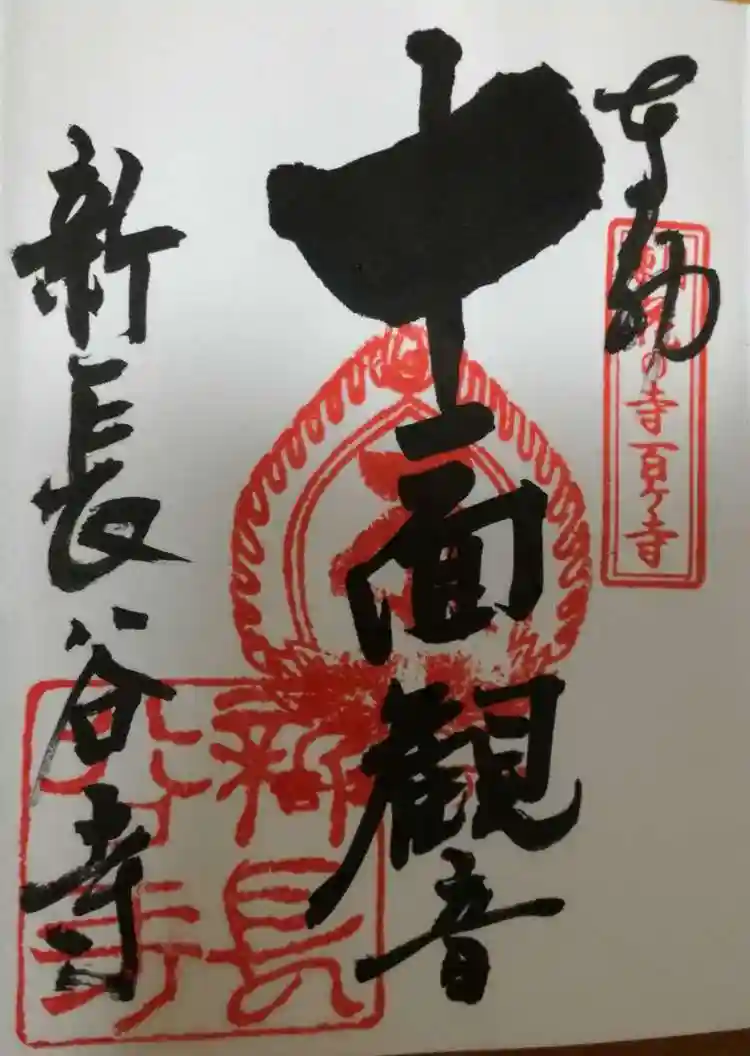 の寺百ヶ寺
十一面観音
新長谷寺
新長
谷寺